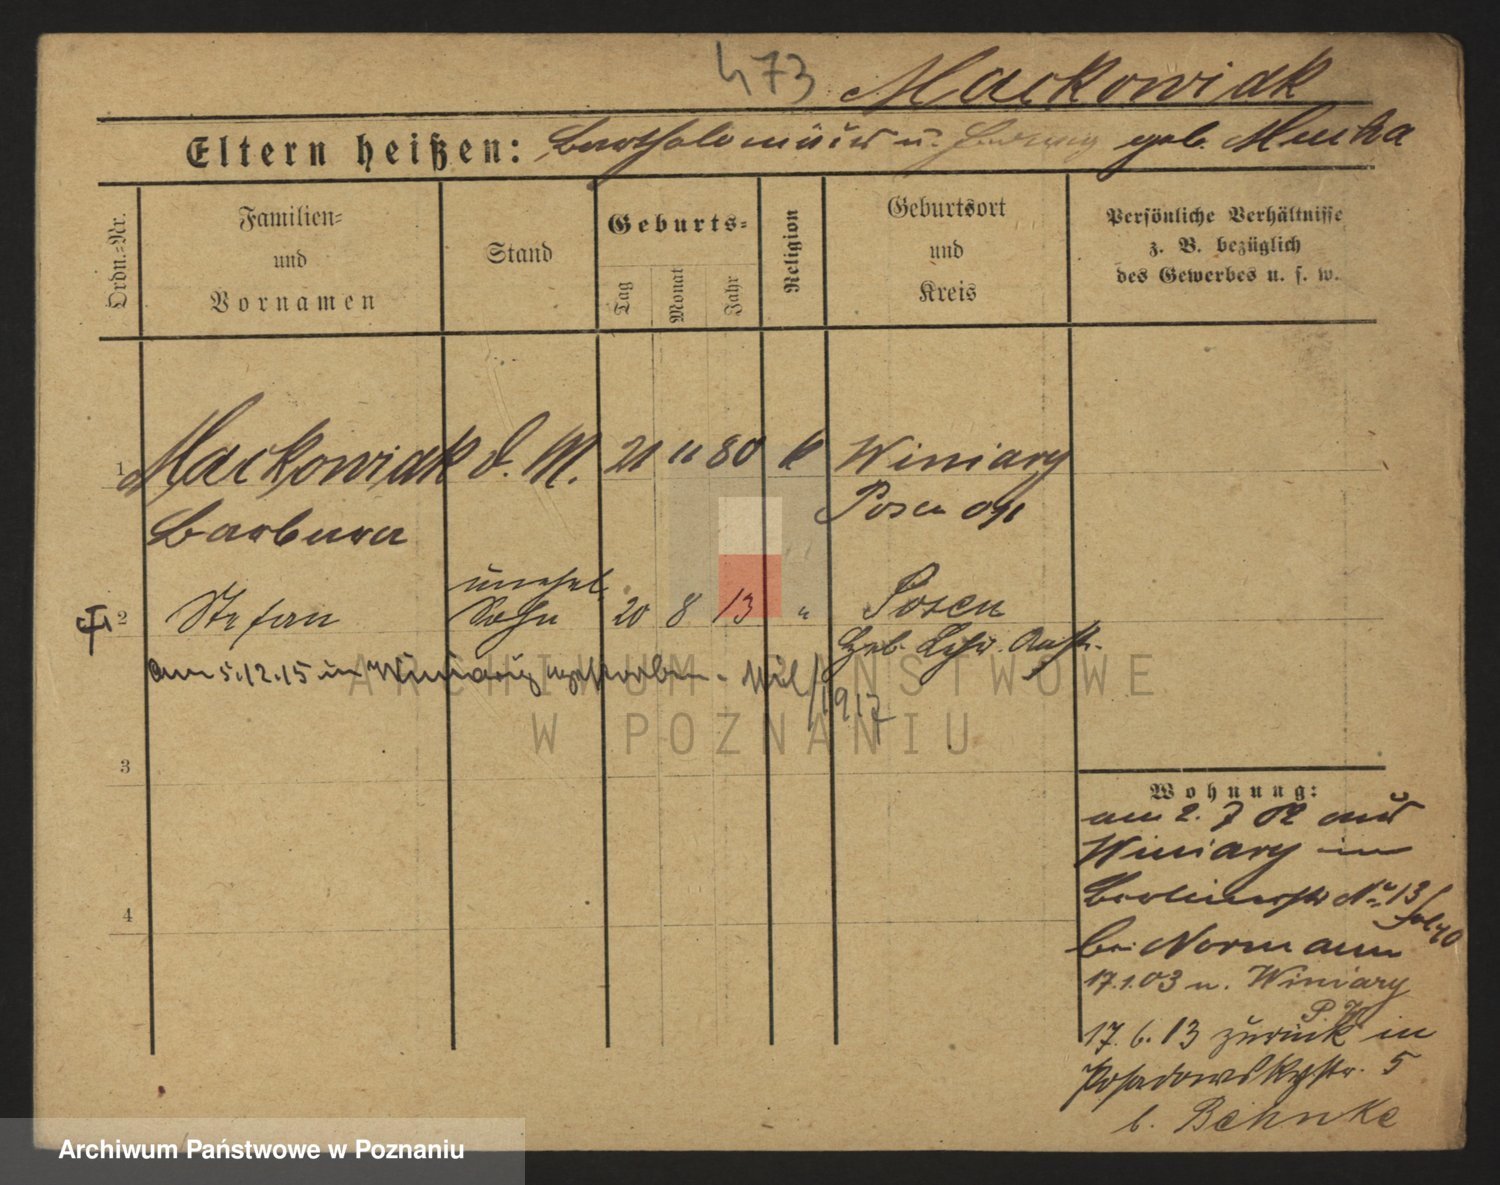 473 Mackowiak
Eltern heißen: Bartholomäus u. Hedwig geb. Mucha
Ordn.-Nr.
Familien-
und
Vornamen
Stand
Geburts-
Tag
Monat
Jahr
Religion
Geburtsort
und
Kreis
Persönliche Verhältnisse
z. B. bezüglich
des Gewerbes u. s. w.
1 Mackowiak d. M. 21 11 80 k Winiary
Barbara Posen
unehel.
2 Stefan Sohn 20 8 13 " Posen
Heb. Lehr. Anst.
am 5.12.15 in Winiary gestorben.
1917
3
4
Wohnung:
am 2. 7 02 aus
Winiary in
Berlinerstr No 13
bei Normann
17.1.03 n. Winiary
17. 6. 13 zurück in
Posadowskystr. 5
b. Behnke
ARCHIWUM PAŃSTWOWE
W POZNANIU
Archiwum Państwowe w Poznaniu